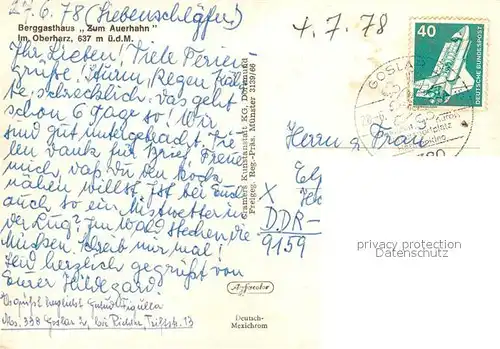 27.6.78 (Siebenschläfer)
4.7.78
Berggasthaus „Zum Auerhahn"
Im Oberharz, 637 m ü.d.M.
Ihr Lieben! Viele Ferien-
grüße! Sturm, Regen, Käl-
te, schrecklich. Das geht
schon 6 Tage so! Wir
sind gut untergebracht. Vie-
len Dank für Brief. Freue
mich, daß Du den Rock
nähen willst. Ist bei Euch
auch so ein Mistwetter in
der Zug? Im Wald stechen die
Mücken. Schreib mir mal!
Seid herzlich gegrüßt von
Eurer Hildegard
Es grüßt herzlich
Abs. 338 Goslar 2, bei Richter, Triftstr. 13
Cramers Kunstanstalt KG, Dortmund
Freigeg. Reg.-Präs. Münster 3139/66
40
DEUTSCHE BUNDESPOST
GOSLAR
Herrn u. Frau
privacy protection
Datenschutz
X
DDR-
9159
Agfacolor
Deutsch-
Mexichrom